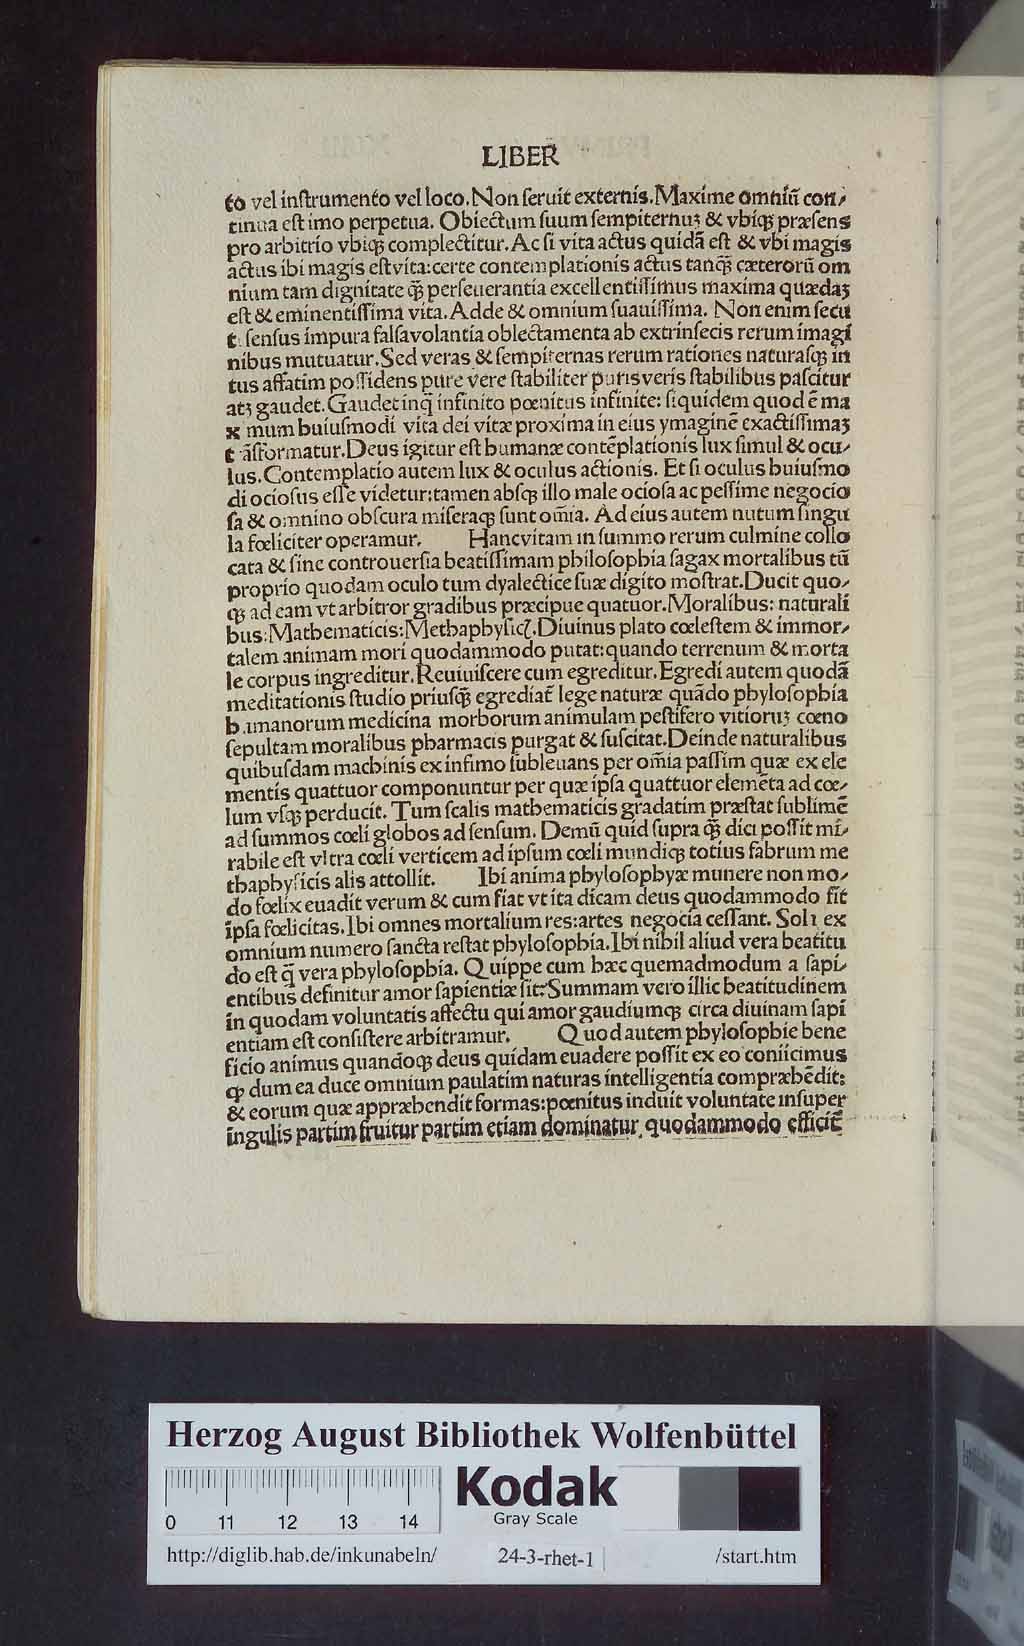 LIBER
to vel inſtrumento vel loco. Non ſeruit externis. Maxime omniū con⸗
tinua eſt imo perpetua. Obiectum ſuum ſempiternuꝫ & vbiqꝫ præſens
pro arbitrio vbiqꝫ complectitur. Ac ſi vita actus quidā eſt & vbi magis
actus ibi magis eſt vita: certe contemplationis actus tanqꝫ̄ cæterorū om
nium tam dignitate qꝫ̄ perſeuerantia excellentiſſimus maxima quædaꝫ
eſt & eminentiſſima vita. Adde & omnium ſuauiſſima. Non enim ſecū
t ſenſus impura falſa volantia oblectamenta ab extrinſecis rerum imagi
nibus mutuatur. Sed veras & ſempiternas rerum rationes naturaſqꝫ in
tus affatim poſſidens pure vere ſtabiliter puris veris ſtabilibus paſcitur
atꝫ gaudet. Gaudet inq̄ infinito pœnitus infinite: ſiquidem quod ē ma
x mum huiuſmodi vita dei vitæ proxima in eius ymaginē exactiſſimaꝫ
t āſformatur. Deus igitur eſt humanæ contēplationis lux ſimul & ocu⸗
lus. Contemplatio autem lux & oculus actionis. Et ſi oculus huiuſmo
di ocioſus eſſe videtur: tamen abſqꝫ illo male ocioſa ac peſſime negocio
ſa & omnino obſcura miſeraqꝫ ſunt om̄ia. Ad eius autem nutum ſingu
la fœliciter operamur. Hanc vitam in ſummo rerum culmine collo
cata & ſine controuerſia beatiſſimam philoſophia ſagax mortalibus tū
proprio quodam oculo tum dyalectice ſuæ digito moſtrat. Ducit quo⸗
qꝫ ad eam vt arbitror gradibus præcipue quatuor. Moralibus: naturali
bus: Mathematicis: Methaphyſicꝭ. Diuinus plato cœleſtem & immor⸗
talem animam mori quodammodo putat: quando terrenum & morta
le corpus ingreditur. Reuiuiſcere cum egreditur. Egredi autem quodā
meditationis ſtudio priuſqꝫ̄ egrediat̄ lege naturæ quādo phyloſophia
humanorum medicina morborum animulam peſtifero vitioruꝫ cœno
ſepultam moralibus pharmacis purgat & ſuſcitat. Deinde naturalibus
quibuſdam machinis ex infimo ſubleuans per om̄ia paſſim quæ ex ele
mentis quattuor componuntur per quæ ipſa quattuor elemēta ad cœ⸗
lum vſqꝫ perducit. Tum ſcalis mathematicis gradatim præſtat ſublimē
ad ſummos cœli globos ad ſenſum. Demū quid ſupra qꝫ̄ dici poſſit mi⸗
rabile eſt vltra cœli verticem ad ipſum cœli mundiqꝫ totius fabrum me
thaphyſicis alis attollit. Ibi anima phyloſophyæ munere non mo⸗
do fœlix euadit verum & cum fiat vt ita dicam deus quodammodo fit
ipſa fœlicitas. Ibi omnes mortalium res: artes negocia ceſſant. Soli ex
omnium numero ſancta reſtat phyloſophia. Ibi nihil aliud vera beatitu
do eſt q̄ vera phyloſophia. Quippe cum hæc quemadmodum a ſapi⸗
entibus definitur amor ſapientiæ ſit: Summam vero illic beatitudinem
in quodam voluntatis affectu qui amor gaudiumqꝫ circa diuinam ſapi
entiam eſt conſiſtere arbitramur. Quod autem phyloſophie bene
ficio animus quandoqꝫ deus quidam euadere poſſit ex eo coniicimus
qꝫ dum ea duce omnium paulatim naturas intelligentia compræhēdit:
& eorum quæ appræhendit formas: pœnitus induit voluntate inſuper
ſingulis partim fruitur partim etiam dominatur, quodammodo efficit̄
Herzog August Bibliothek Wolfenbüttel
Kodak
Gray Scale
0 11 12 13 14
http://diglib.hab.de/inkunabeln/ 24-3-rhet-1 /start.htm